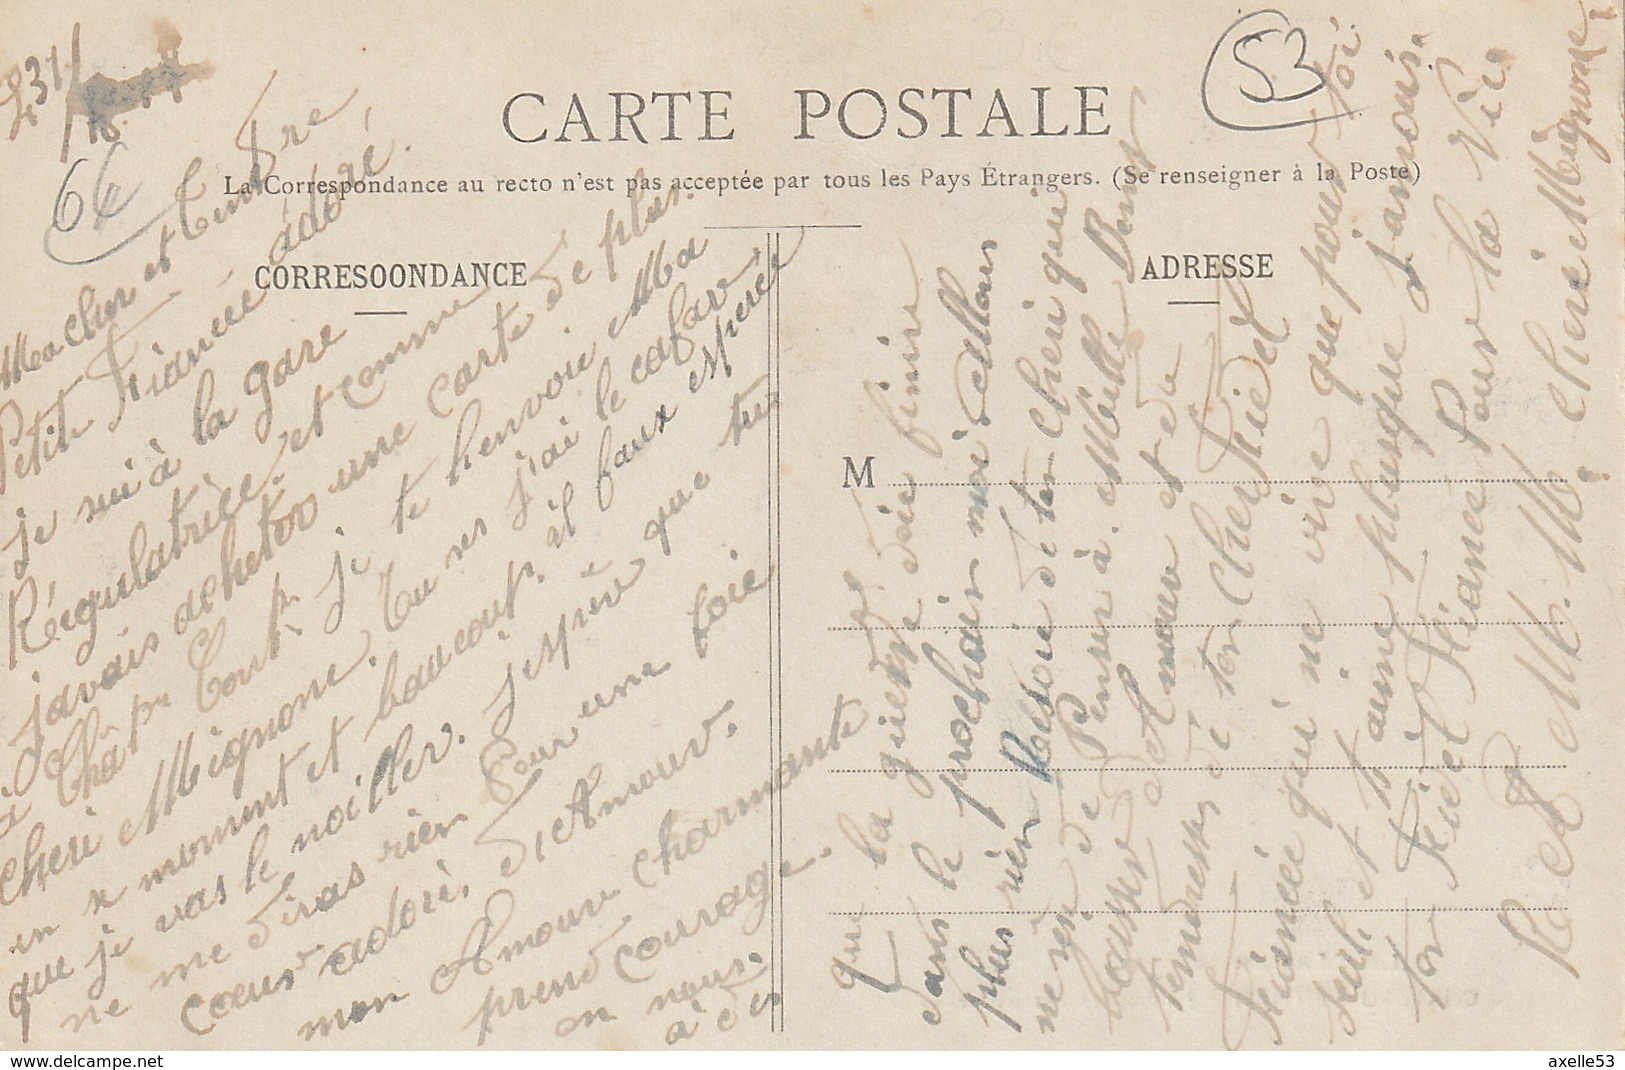 231/
6€
53
CARTE POSTALE
La Correspondance au recto n'est pas acceptée par tous les Pays Étrangers. (Se renseigner à la Poste)
CORRESOONDANCE
ADRESSE
M
Ma cher et tendre
Petit Fiancée adoré,
je sui à la gare
Régulatrice, et comme
javais acheter une carte de plus.
à Chât
je te henvoie Ma
cheri Mignone. tu ses j'ai le cafar
en ce moment et baucoup. il faux espéré
que je vas le noiller. jespére que tu
ne me diras rien Pour une foie
coeur adoré, d'Amour.
mon Amour charmante
prend courage.
on nous
à dit
que la guerre doie finire
dans le prochain moi. Allons
plus rien Resoie de ton cheri qui
ne ses de Penser à. Mille Bons
baisser d'Amour et de
tendresses de ton Cher Fidel
Fiancée qui ne vie que pour toi
seul et t'aime plusque jamais.
ton Fidel Fiancé Pour la Vie
R M. M. cheri Mignone!